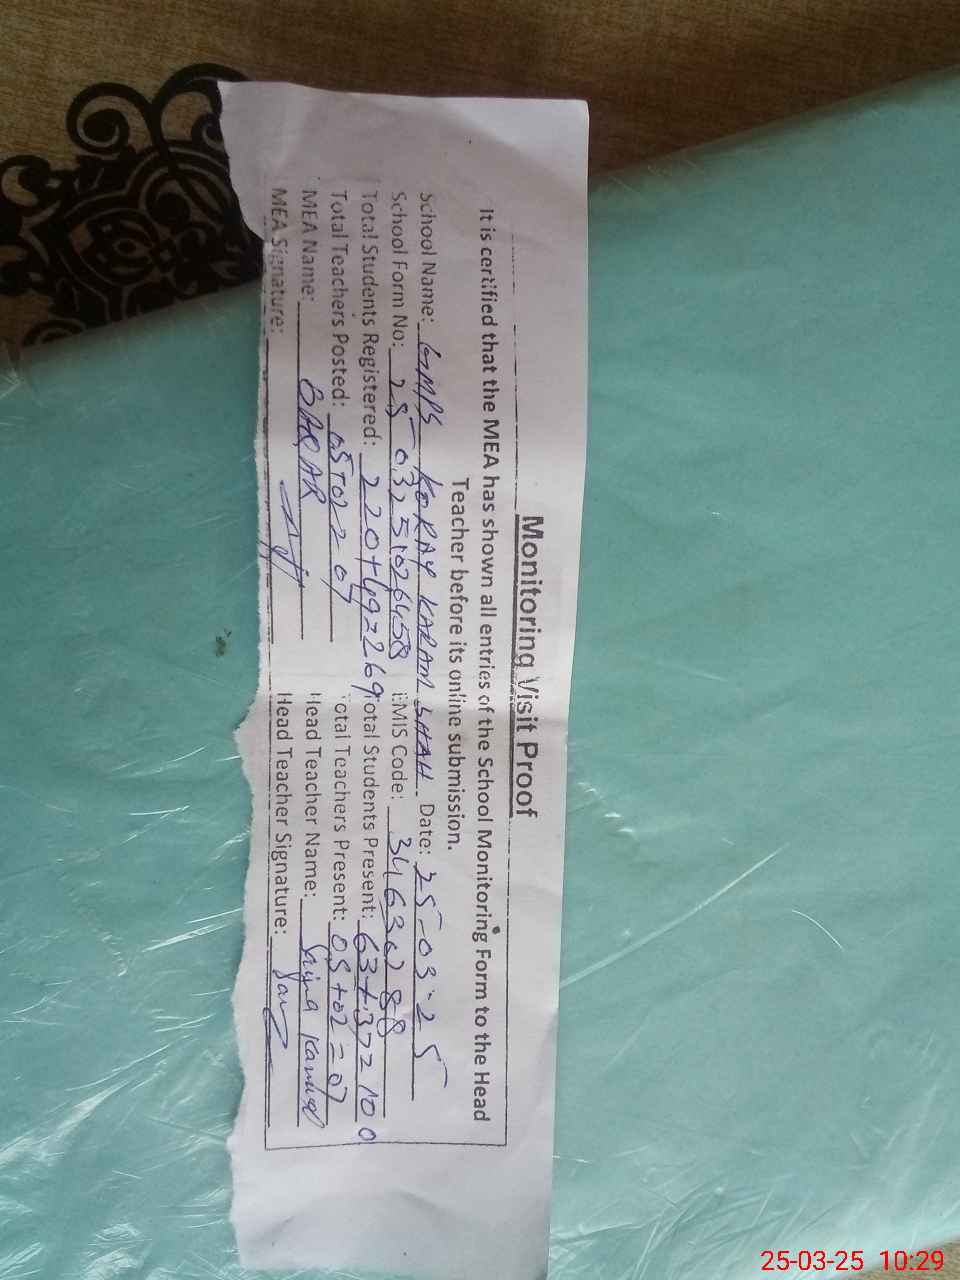 Monitoring Visit Proof
It is certified that the MEA has shown all entries of the School Monitoring Form to the Head
Teacher before its online submission.
School Name: GMPS KORAY KARAM SHAH Date: 25-03-25
School Form No: 25-03251026458 EMIS Code: 34630288
Total Students Registered: 220+49=269 Total Students Present: 63+37=100
Total Teachers Posted: 05+02=07 Total Teachers Present: 05+02=07
MEA Name: BAQAR Head Teacher Name: Saiqa
MEA Signature: Head Teacher Signature:
25-03-25 10:29